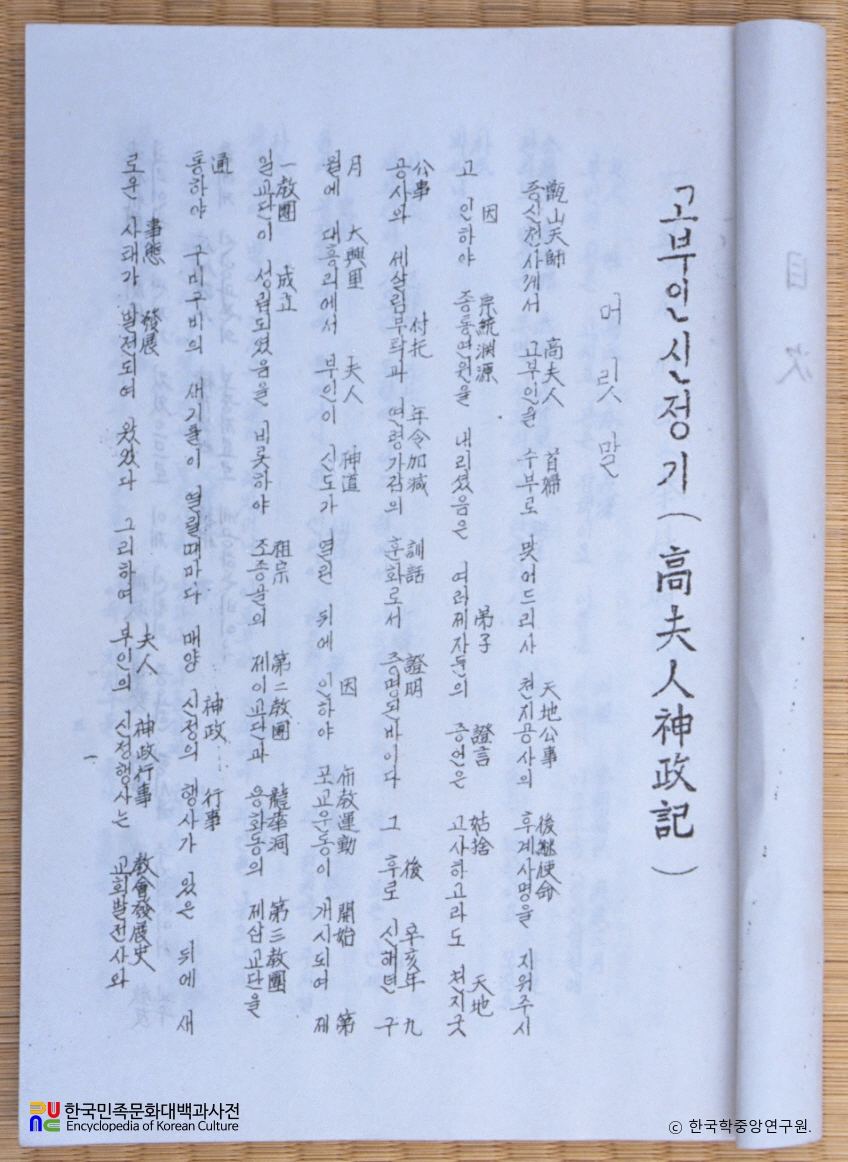 目次
고부인신정기(高夫人神政記)
머릿말
甑山天師 高夫人 首婦 天地公事 後継使命
증산천사께서 고부인을 수부로 맞어드리사 천지공사의 후계사명을 지워주시
因 宗統淵源 弟子 證言 姑捨 天地
고 인하야 종통연원을 내리셨음은 여러제자들의 증언은 고사하고라도 천지굿
公事 付托 年令加減 訓話 證明 後 辛亥年 九
공사와 세살림부탁과 연령가감의 훈화로서 증명된바이다 그 후로 신해년 구
月 大興里 夫人 神道 因 佈教運動 開始 第
월에 대흥리에서 부인이 신도가 열린 뒤에 인하야 포교운동이 개시되여 제
一教團 成立 祖宗 第二教團 龍華洞 第三教團
일교단이 성립되였음을 비롯하야 조종골의 제이교단과 용화동의 제삼교단을
通 神政 行事
통하야 구비구비의 새기틀이 열릴때마다 매양 신정의 행사가 있은 뒤에 새
事態 發展 夫人 神政行事 教會發展史
로운 사태가 발전되여 왔었다 그리하여 부인의 신정행사는 교회발전사와
한국민족문화대백과사전
Encyclopedia of Korean Culture
© 한국학중앙연구원.